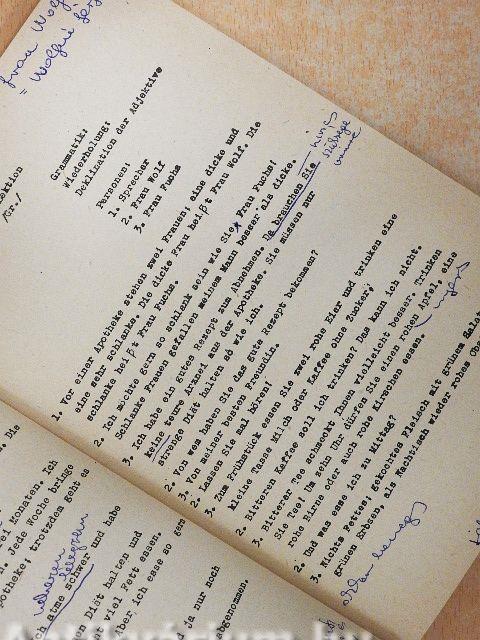 Frau Wolf
= Wolfné
ektion
/Gr./
Grammatik:
Wiederholung:
Deklination der Adjektive
Personen:
1. Sprecher
2. Frau Wolf
3. Frau Fuchs
1. Vor einer Apotheke stehen zwei Frauen; eine dicke und
eine sehr schlanke. Die dicke Frau heißt Frau Wolf. Die
schlanke heißt Frau Fuchs.
2. Ich möchte gern so schlank sein wie Sie, Frau Fuchs!
Schlanke Frauen gefallen meinem Mann besser als dicke.
3. Ich habe ein gutes Rezept zum Abnehmen. Da brauchen Sie
keine teure Arznei aus der Apotheke. Sie müssen nur
strenge Diät halten so wie ich.
2. Von wem haben Sie das gute Rezept bekommen?
3. Von meiner besten Freundin.
2. Lassen Sie mal hören!
3. Zum Frühstück essen Sie zwei rohe Eier und trinken eine
kleine Tasse Milch oder Kaffee ohne Zucker;
2. Bitteren Kaffee soll ich trinken? Das kann ich nicht.
3. Bitterer Tee schmeckt Ihnen vielleicht besser. Trinken
Sie Tee! Um zehn Uhr dürfen Sie einen rohen Apfel, eine
rohe Birne oder auch rohe Kirschen essen.
2. Und was esse ich zu Mittag?
3. Nichts Fettes; gekochtes Fleisch mit grünem Salat
grünen Erbsen, als Nachtisch wieder rohes Obs
nyers
. Die
ei Monaten. Ich
. Jede Woche bringe
potheke; trotzdem geht es
ch atme schwer und habe
en Diät halten und
viel Fett essen.
ber, ich esse so gern
ja nur noch
genommen.
Antikvárium.hu